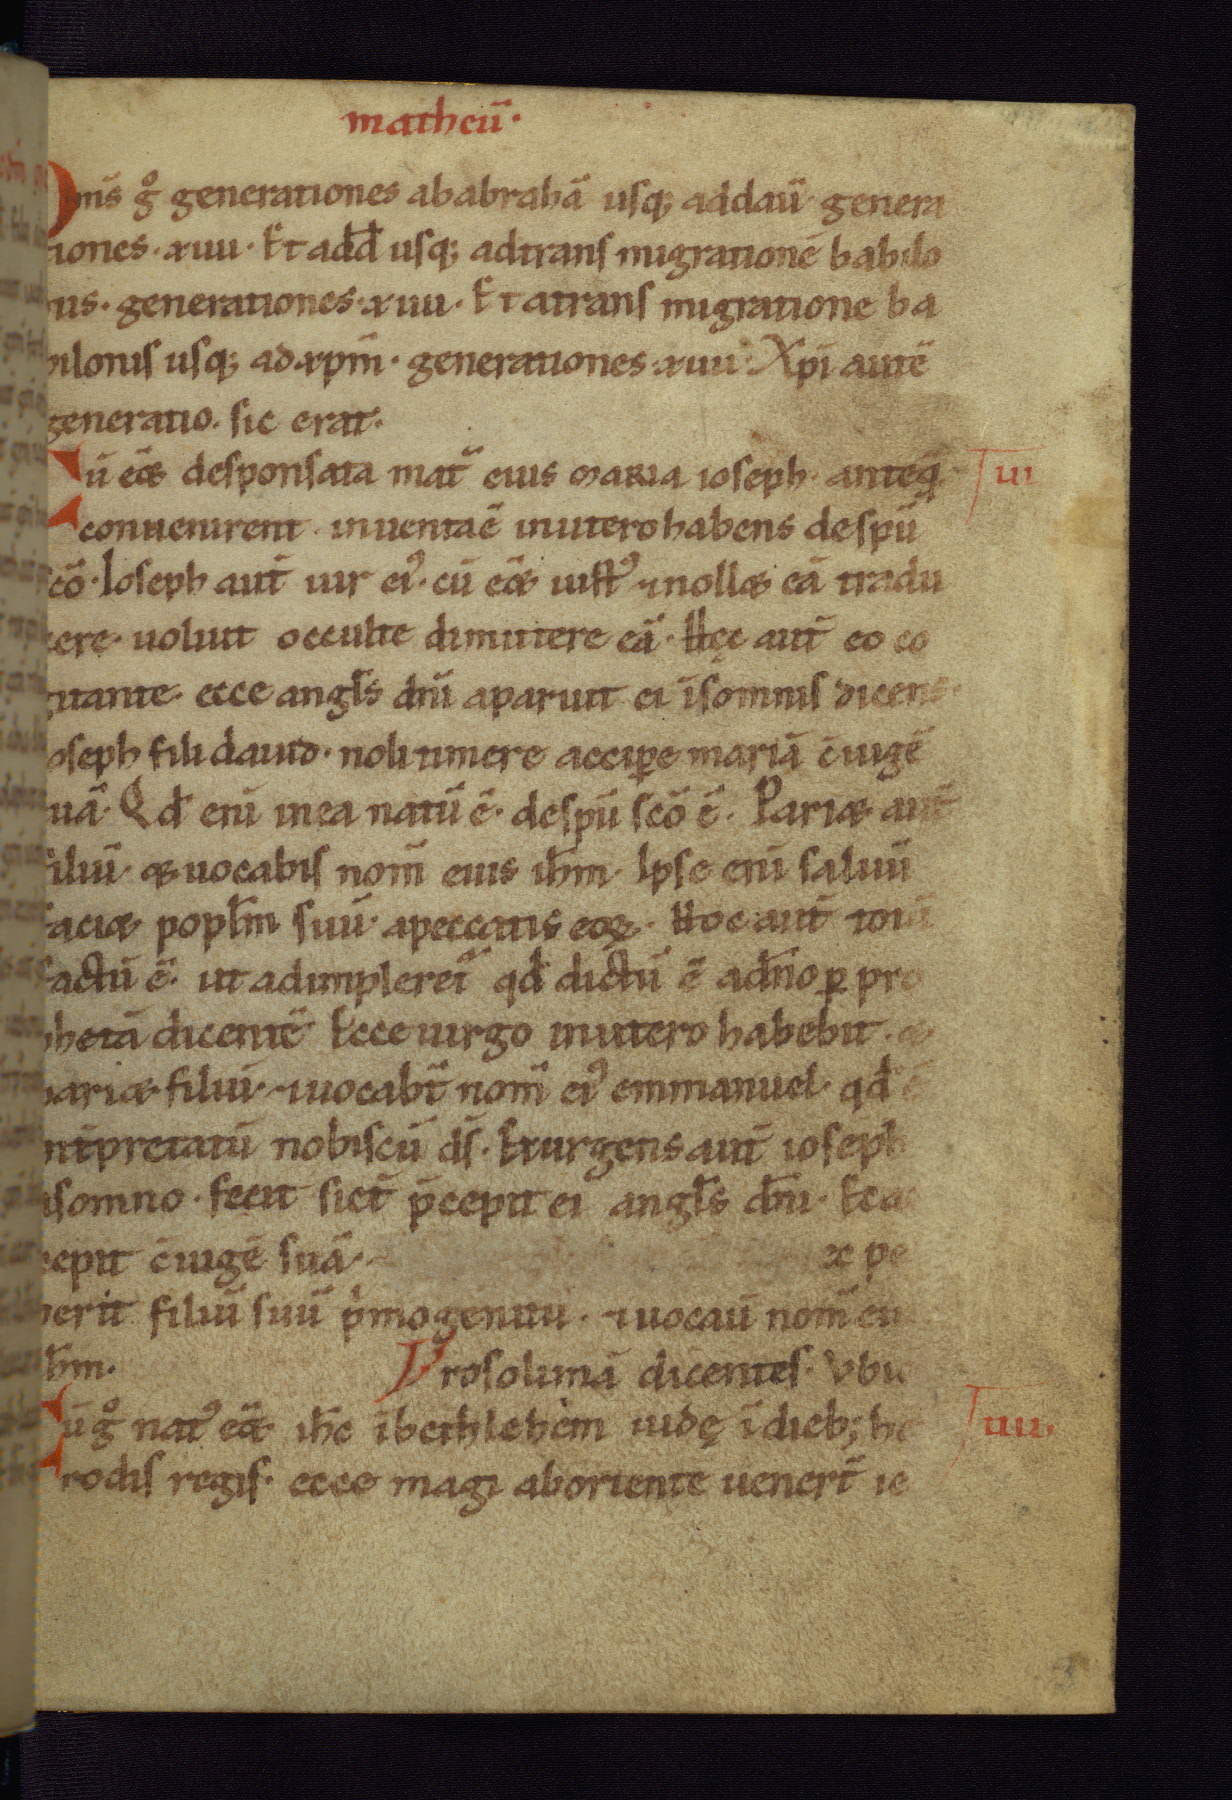 matheū·
Om̄s gͦ generationes ababrahā usq; addauͥ genera
tiones·xiiii· Et add̄ usq; adtrans migrationē babilo
nis· generationes·xiiii· Et atrans migratione ba
bilonis usq; ad xp̄m· generationes·xiiii· Xp̄i autē
generatio· sic erat·
Cū eēt desponsata mat̄ eius maria ioseph· anteq̄ iii
conuenirent· inuentaē inuterohabens despū
sc̄ō· Ioseph aut̄ uir ei᷒· cū eēt iust᷒· ⁊nollet eā tradu
cere· uoluit occulte dimittere eā· Hęc aut̄ eo co
gitante· ecce angl̄s dn̄i aparuit ei īsomnis dicens·
ioseph fili dauid· noli timere accipe mariā c̄iugē
tuā· Qd̄ eni īnea natū ē· despū sc̄ō ē· Pariet aut̄
filiū· et uocabis nom̄ eius ih̄m· Ipse eni saluū
faciet popl̄m suū· apeccatis eoꝝ· Hoc aut̄ totū
factū ē· ut adimpleret̄ qd̄ dictū ē adn̄o ꝑ pro
phetā dicentē Ecce uirgo inutero habebit· et
pariet filiū· ⁊uocabt̄ nom̄ ei᷒ emmanuel· qd̄ ē
int̄pretatū nobiscū ds̄· Exurgens aut̄ ioseph
asomno· fecit sict̄ p̄cepit ei angl̄s dn̄i· Et ac
cepit c̄iugē suā· x pe
perit filiū suū pͥmogenitū· ⁊uocauͥ nom̄ eiu
ih̄m· rosolimā dicentes· Vbi
Cū gͦ nat᷒ eēt ih̄c ībethlehem iudę īdieb; he iiii·
rodis regis· ecce magi aboriente uenert̄ ie